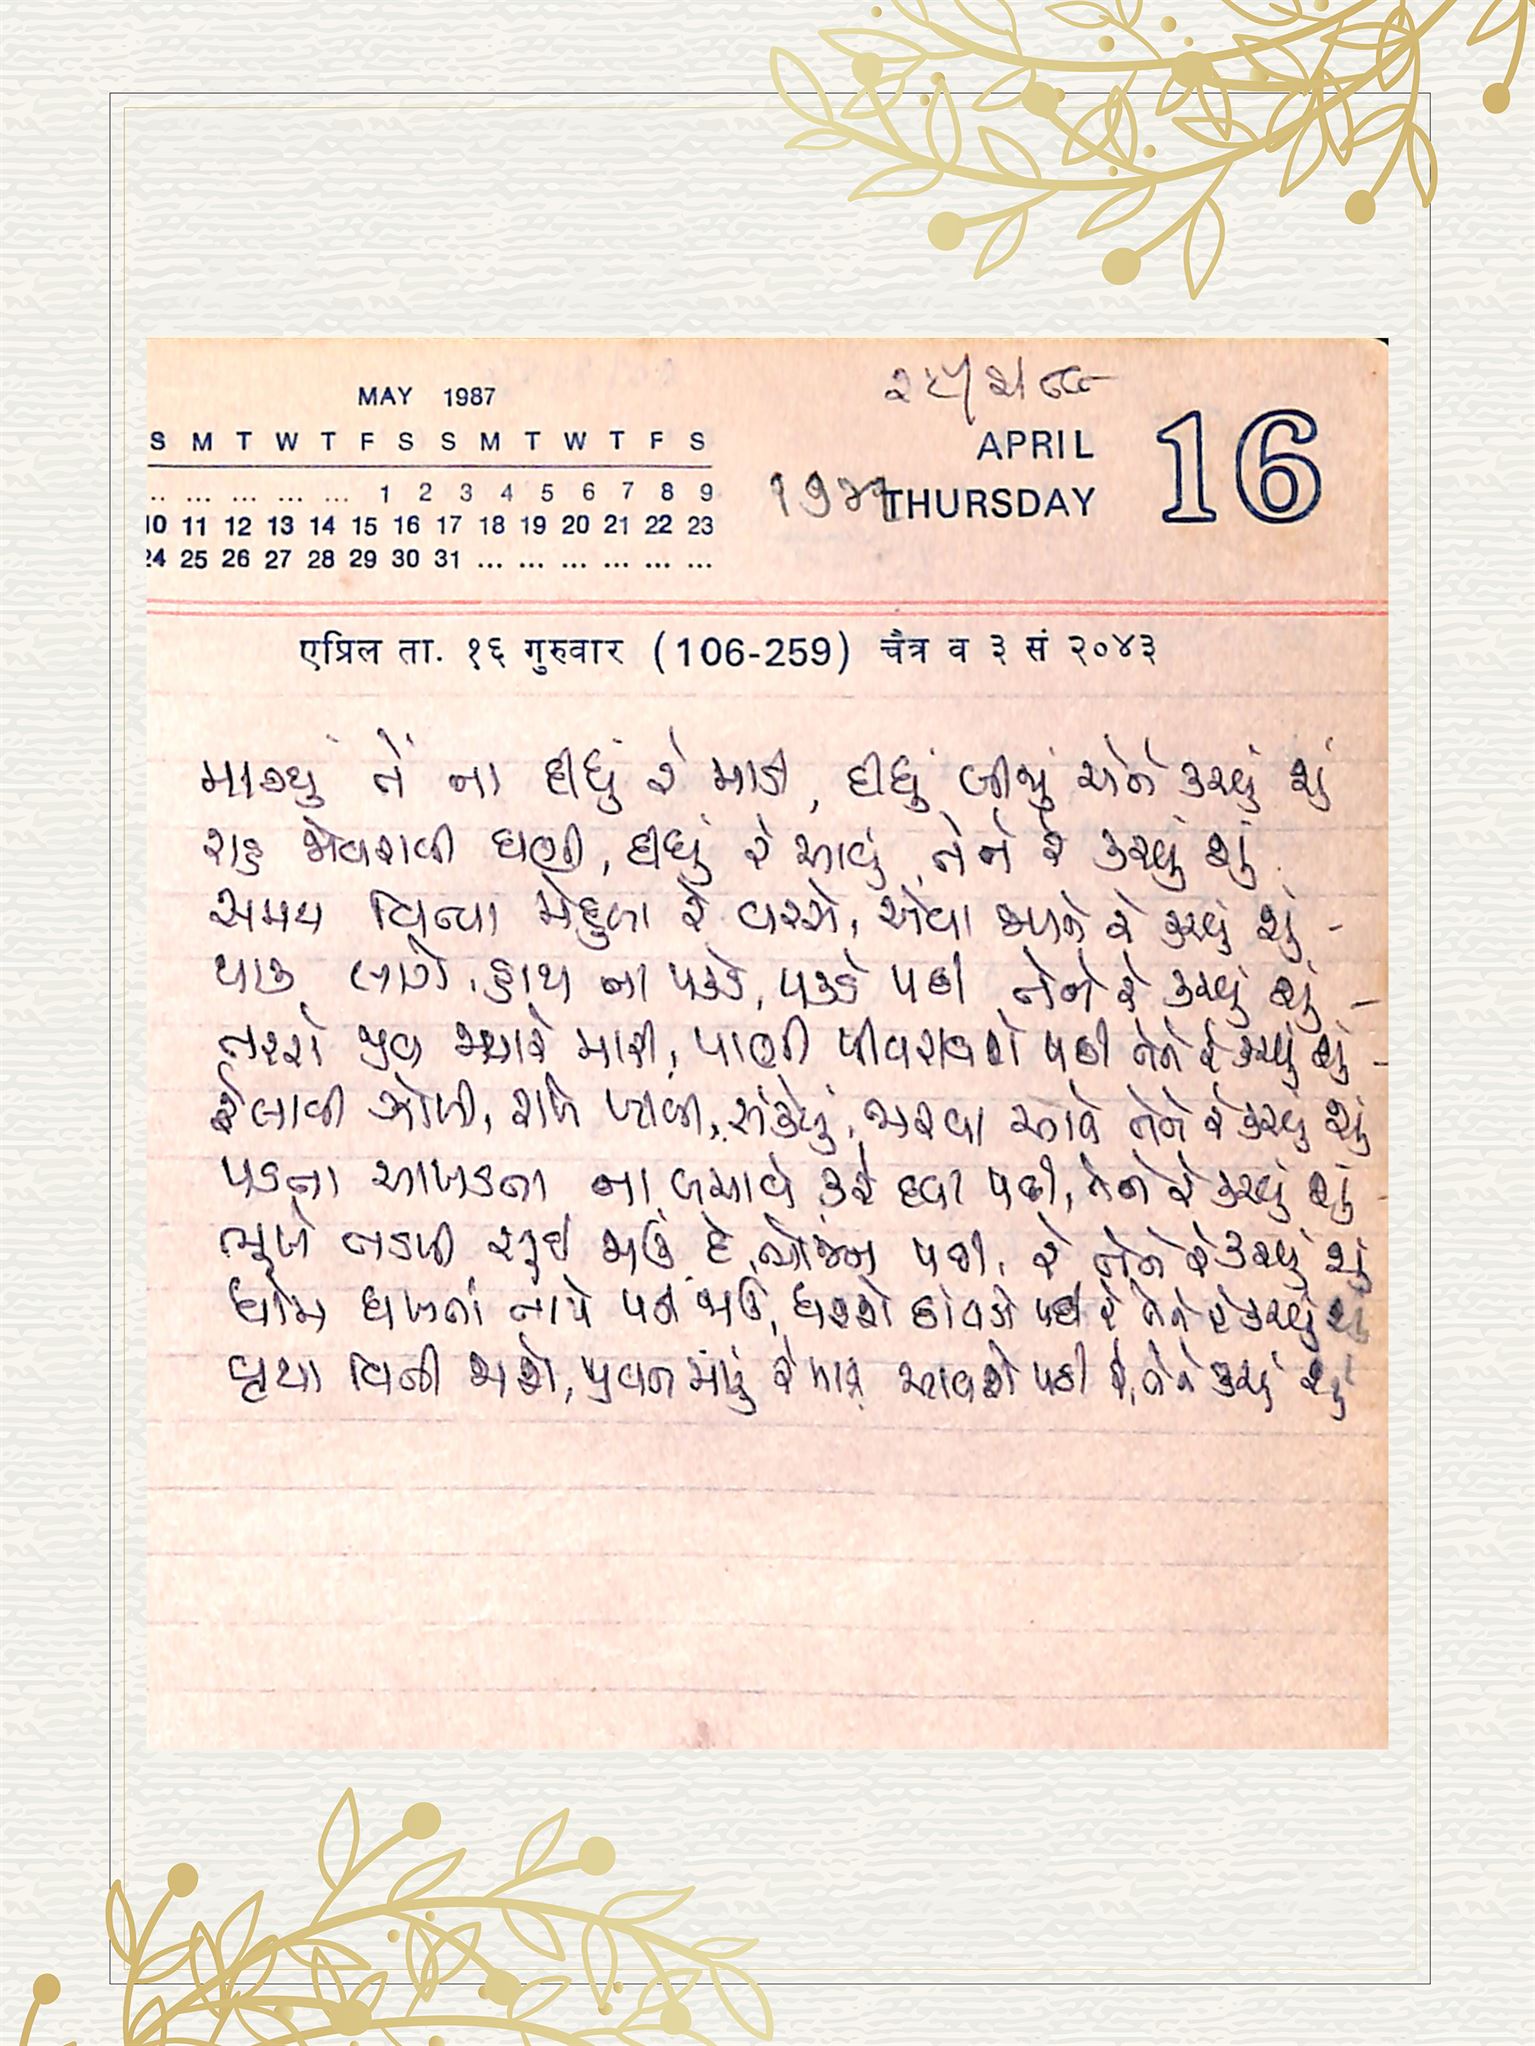 MAY 1987
S M T W T F S S M T W T F S
.. ... ... ... ... 1 2 3 4 5 6 7 8 9
10 11 12 13 14 15 16 17 18 19 20 21 22 23
24 25 26 27 28 29 30 31 ... ... ... ... ... ...
APRIL
THURSDAY
16
एप्रिल ता. १६ गुरुवार (106-259) चैत्र व ३ सं २०४३
માગ્યું તેં ના દીધું રે માડી, દીધું બીજું એને કરવું શું
રાહ જોવરાવી ઘણી, દીધું રે આવું તેને રે કરવું શું
સમય વિના મેહુલા રે વરસે, એવા જળને રે કરવું શું -
થાક લાગે, હાથ ના પકડે, પકડે પછી તેને રે કરવું શું -
તરસે જીવ જ્યારે મારો, પાણી પીવરાવશે પછી તેને રે કરવું શું -
ફેલાવી ઝોળી, રાખે ખાલી, સંકેલું, ભરવા આવે તેને રે કરવું શું
પડતા આખડતા ના બચાવે કરે દવા પછી, તેને રે કરવું શું -
ભૂખે તડપી મરી જાઉં દે ભોજન પછી, રે તેને રે કરવું શું
ધોમ ધખતાં તાપે પગ જાઉં, ધરશે છાંયડો પછી રે તેને રે કરવું શું
વૃથા વિતી જાશે, જીવન મોંઘું રે મારું આવશે પછી રે, તેને કરવું શું